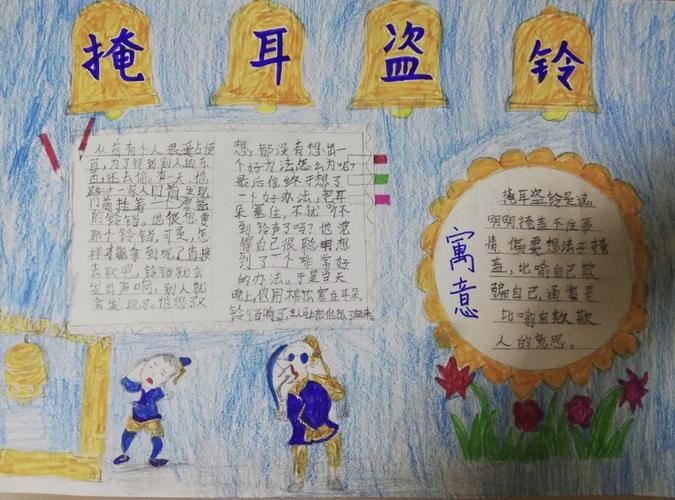 掩耳盗铃
从前有个人很爱占便
宜,为了得到别人的东
西,还去偷。有一天,他
路过一家人门前,发现
门前挂着一个漂亮
的铃铛。他很想要
那个铃铛。可是,怎
样才能拿到呢?直接
去取吧,铃铛就会
发出声响,别人就
会发现了。他想了又
想,都没有想出一
个好办法,怎么办呢?
最后他终于想了
一个好办法,把耳
朵塞住,不就听不
到铃声了吗?他觉
得自己很聪明想
到了一个非常好
的办法。于是当天
晚上,他用棉花塞在耳朵,
铃铛响了主人把他抓了起来。
寓意
掩耳盗铃是说
明明掩盖不住事
情,偏要想法子掩
盖,比喻自己欺
骗自己,通常是
比喻自欺欺
人的意思。